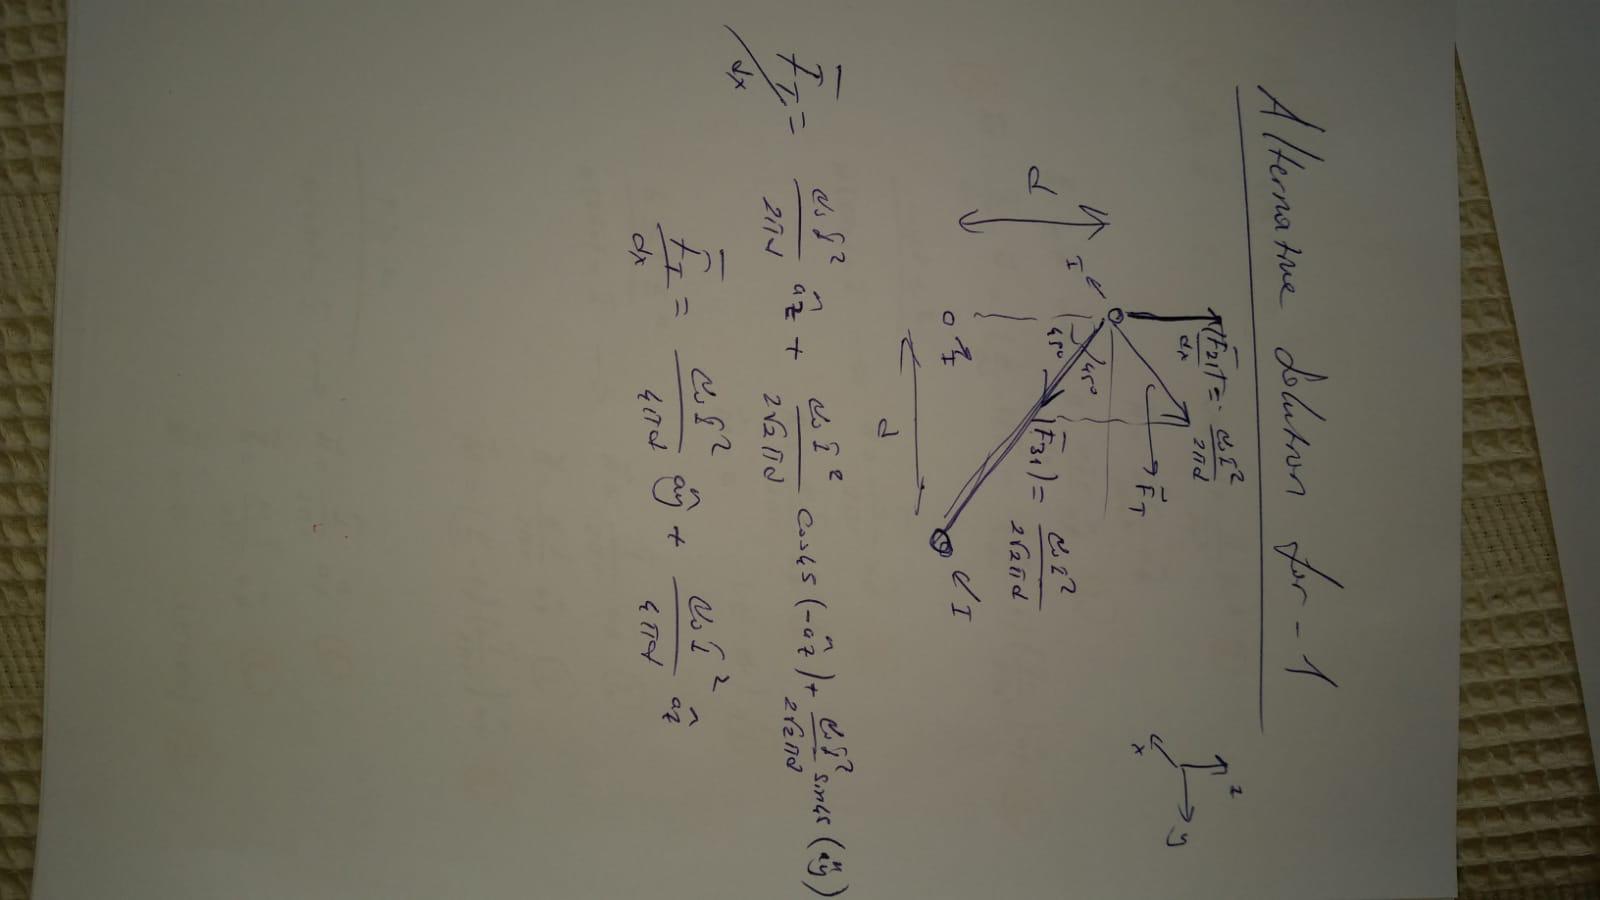 Alternative Solution for -1
|F̄₂₁|/dx = μ₀I²/2πd
z
y
x
F̄_T
I
45°
45°
d
|F̄₃₁| = μ₀I²/2√2πd
I
I
d
F̄_T/dx = μ₀I²/2πd âz + μ₀I²/2√2πd cos45 (-âz) + μ₀I²/2√2πd sin45 (ây)
F̄_T/dx = μ₀I²/4πd ây + μ₀I²/4πd âz